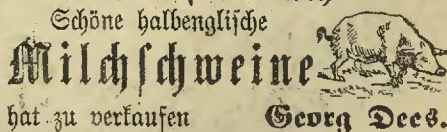 Schöne halbenglische
Milchschweine
hat zu verkaufen Georg Dees.